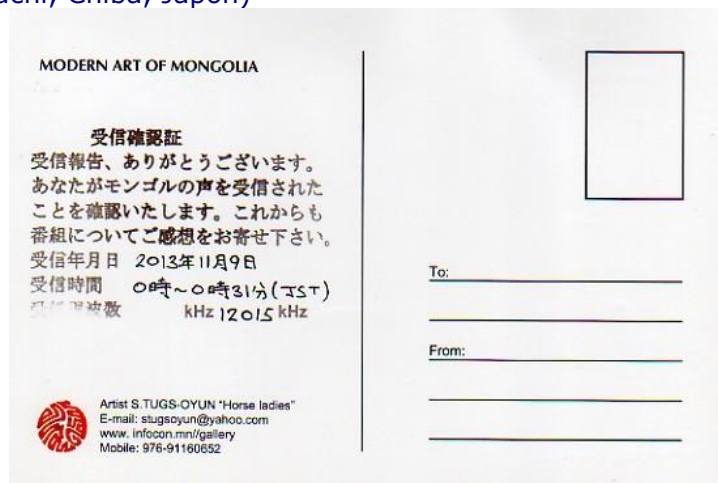 achi, Chiba, Japon)
MODERN ART OF MONGOLIA
受信確認証
受信報告、ありがとうございます。
あなたがモンゴルの声を受信された
ことを確認いたします。これからも
番組についてご感想をお寄せ下さい。
受信年月日 2013年11月9日
受信時間 0時~0時31分(JST)
受信周波数 kHz 12015 kHz
Artist S.TUGS-OYUN "Horse ladies"
E-mail: stugsoyun@yahoo.com
www. infocon.mn//gallery
Mobile: 976-91160652
To:
From: